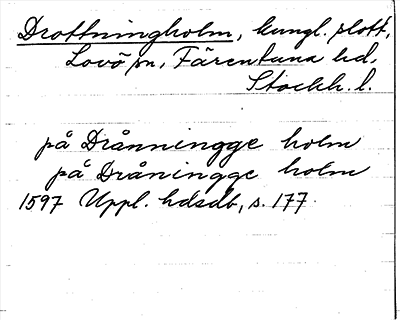 Drottningholm, kungl. slott,
Lovö sn, Färentuna hd,
Stockh. l.
på Drånningge holm
på Dråningge holm
1597 Uppl. hdsdb, s. 177.